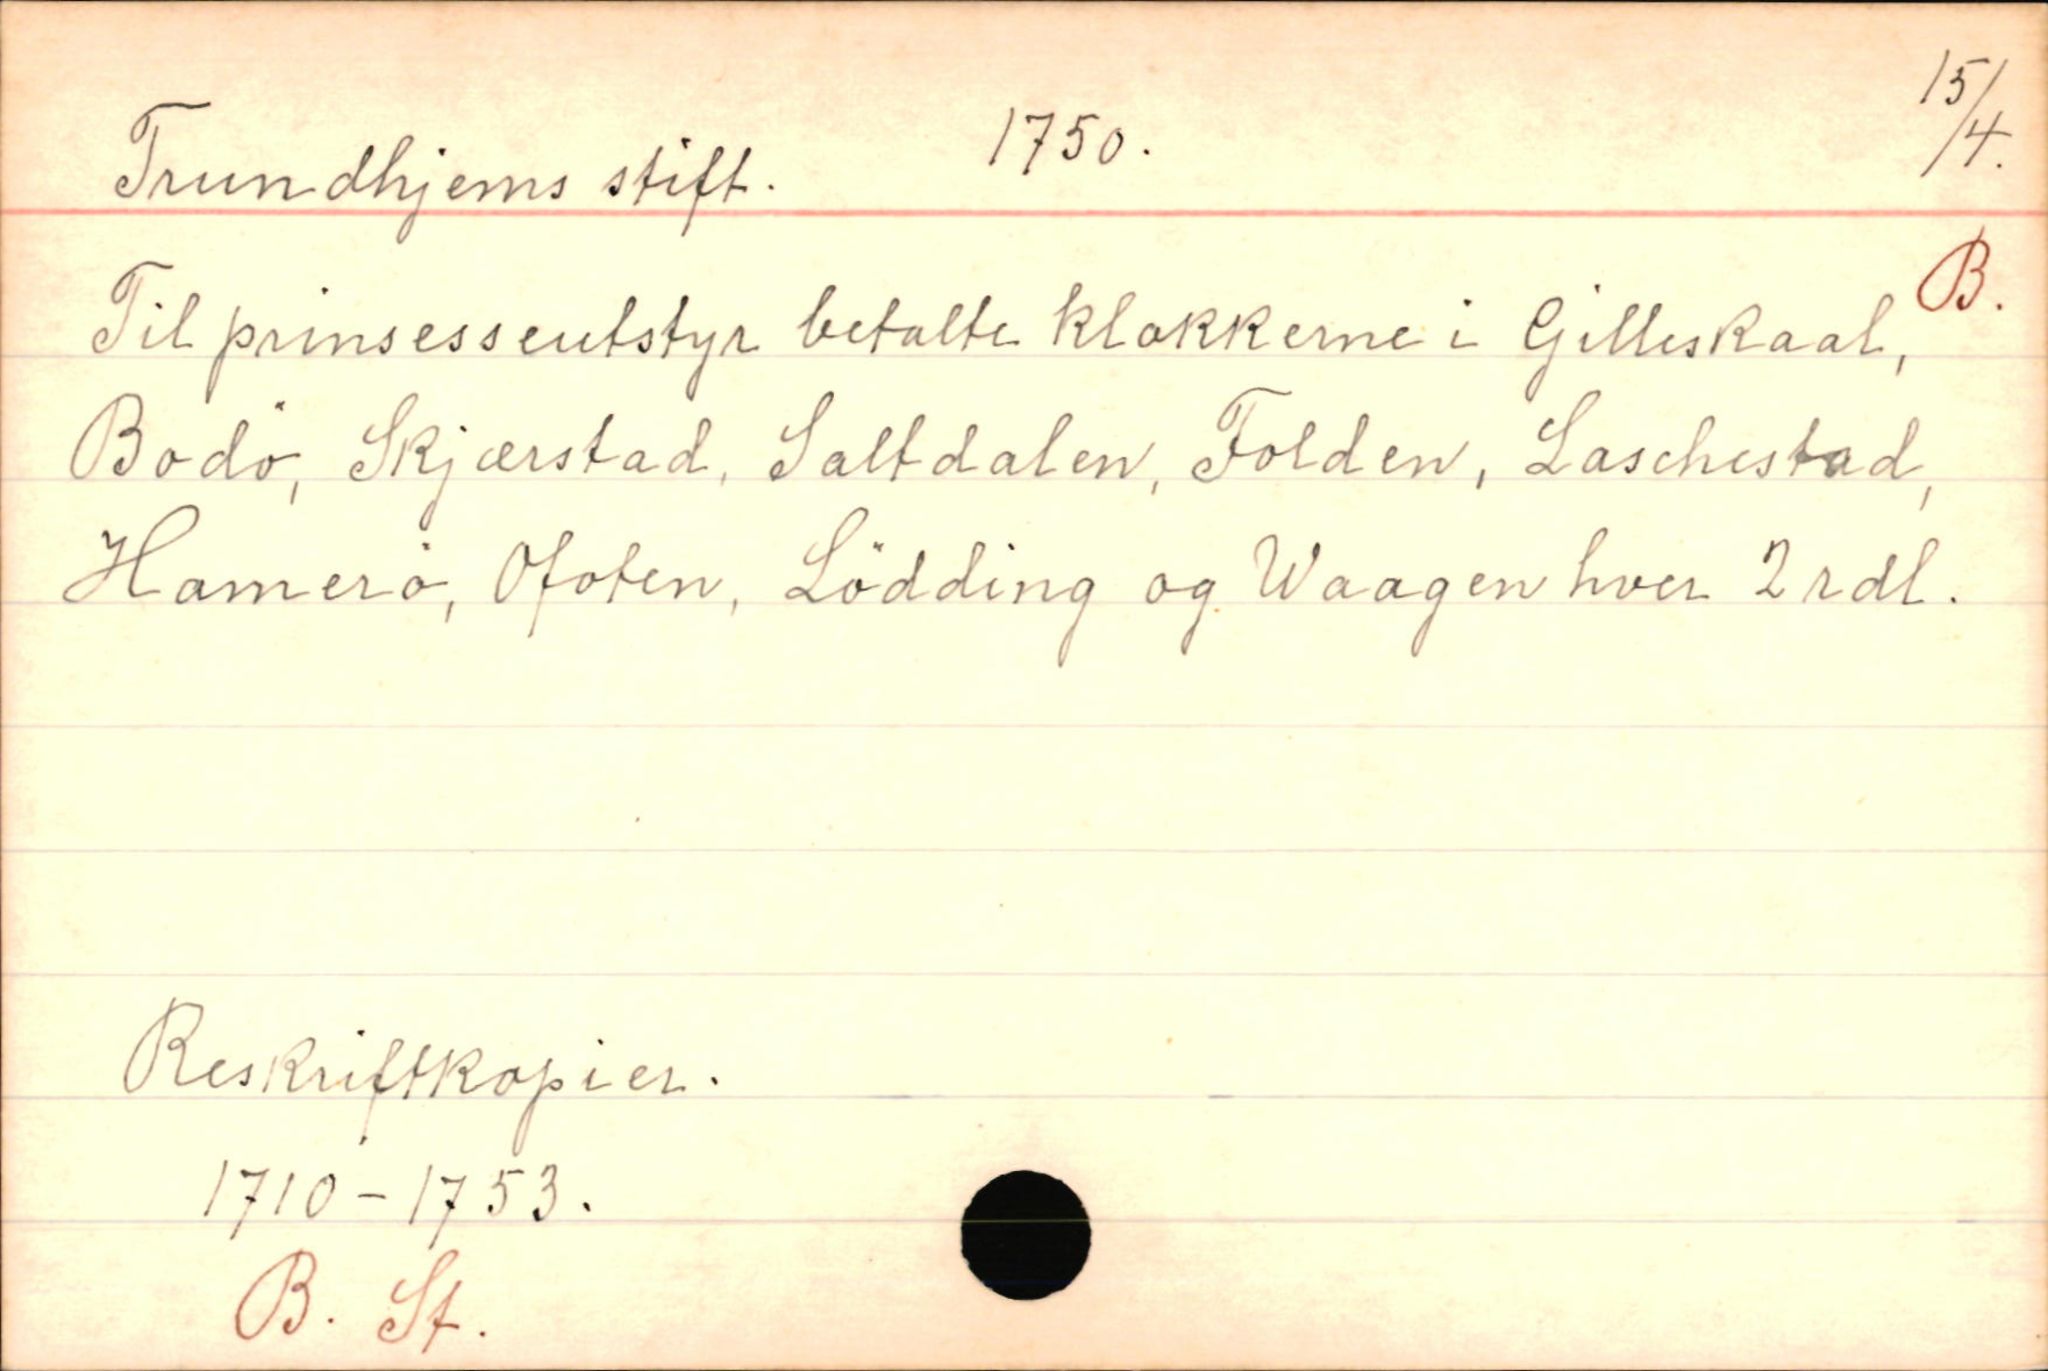 Trundhjems stift. 1750. 15/4.
B.
Til prinsesseutstyr betalte klokkerne i Gilleskaal,
Bodö, Skjærstad, Saltdalen, Folden, Laschestad,
Hamerö, Ofoten, Lödding og Waagen hver 2 rdl.
Reskriftkopier.
1710-1753.
B. St.